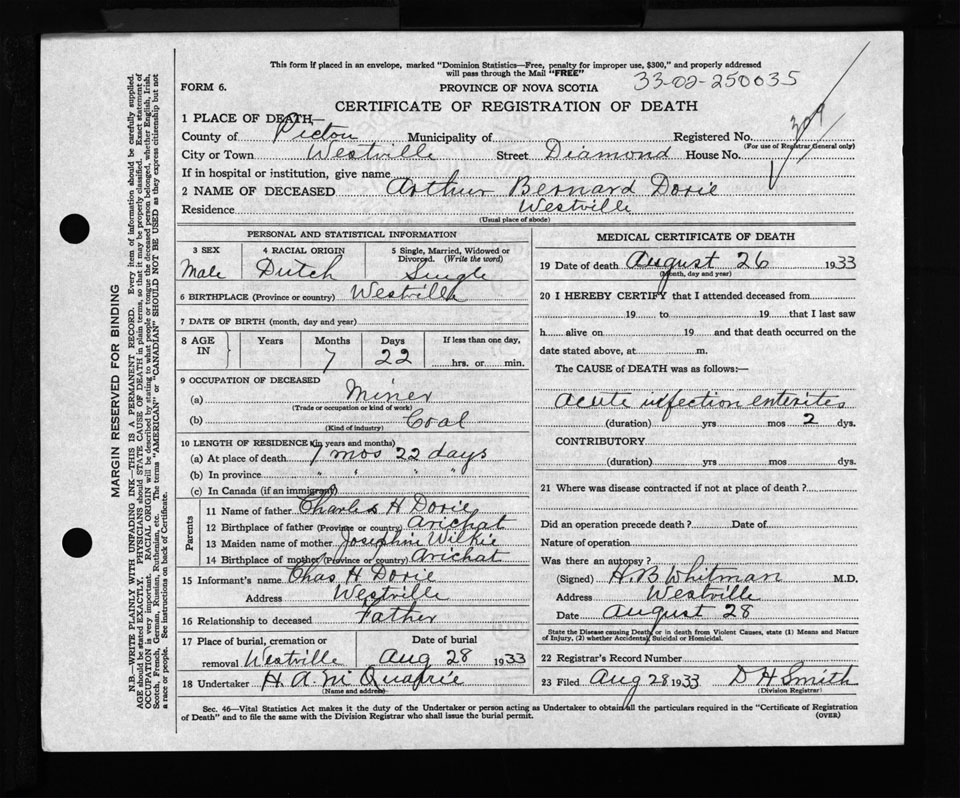 This form if placed in an envelope, marked "Dominion Statistics—Free, penalty for improper use, $300," and properly addressed
will pass through the Mail "FREE"
33-02-250035
FORM 6.
PROVINCE OF NOVA SCOTIA
CERTIFICATE OF REGISTRATION OF DEATH
309
1 PLACE OF DEATH—
County of Pictou Municipality of Registered No.
(For use of Registrar General only)
City or Town Westville Street Diamond House No.
If in hospital or institution, give name
2 NAME OF DECEASED Arthur Bernard Dorie
Residence Westville
(Usual place of abode)
PERSONAL AND STATISTICAL INFORMATION
3 SEX 4 RACIAL ORIGIN 5 Single, Married, Widowed or
Divorced. (Write the word)
Male Dutch Single
6 BIRTHPLACE (Province or country) Westville
7 DATE OF BIRTH (month, day and year)
8 AGE IN Years Months Days If less than one day,
7 22 hrs. or min.
9 OCCUPATION OF DECEASED
(a) Miner
(Trade or occupation or kind of work)
(b) Coal
(Kind of industry)
10 LENGTH OF RESIDENCE (in years and months)
(a) At place of death 7 mos 22 days
(b) In province " " " "
(c) In Canada (if an immigrant)
Parents
11 Name of father Charles H Dorie
12 Birthplace of father (Province or country) Arichat
13 Maiden name of mother Josephine Wilkie
14 Birthplace of mother (Province or country) Arichat
15 Informant's name Chas H Dorie
Address Westville
16 Relationship to deceased Father
17 Place of burial, cremation or Date of burial
removal Westville Aug 28 1933
18 Undertaker H. A. McQuarrie
(Name and address)
MEDICAL CERTIFICATE OF DEATH
19 Date of death August 26 1933
(Month, day and year)
20 I HEREBY CERTIFY that I attended deceased from
19 to 19 that I last saw
h alive on 19 and that death occurred on the
date stated above, at m.
The CAUSE of DEATH was as follows:—
Acute infection enterites
(duration) yrs mos 2 dys.
CONTRIBUTORY
(duration) yrs mos dys.
21 Where was disease contracted if not at place of death?
Did an operation precede death? Date of
Nature of operation
Was there an autopsy?
(Signed) H. B Whitman M.D.
Address Westville
Date August 28
State the Disease causing Death, or in death from Violent Causes, state (1) Means and Nature
of Injury, (2) whether Accidental, Suicidal or Homicidal.
22 Registrar's Record Number
23 Filed Aug 28 1933 D H Smith
(Division Registrar)
Sec. 46—Vital Statistics Act makes it the duty of the Undertaker or person acting as Undertaker to obtain all the particulars required in the "Certificate of Registration
of Death" and to file the same with the Division Registrar who shall issue the burial permit. (OVER)
MARGIN RESERVED FOR BINDING
N.B.—WRITE PLAINLY WITH UNFADING INK—THIS IS A PERMANENT RECORD. Every item of information should be carefully supplied.
AGE should be stated EXACTLY. PHYSICIANS should STATE CAUSE OF DEATH in plain terms, so that it may be properly classified. Exact statement of
OCCUPATION is very important. RACIAL ORIGIN will be described by stating to what people or tongue the deceased person belonged, whether English, Irish,
Scotch, French, German, Russian, Ruthenian, etc. The terms "AMERICAN" or "CANADIAN" SHOULD NOT BE USED as they express citizenship but not
a race or people. See instructions on back of Certificate.